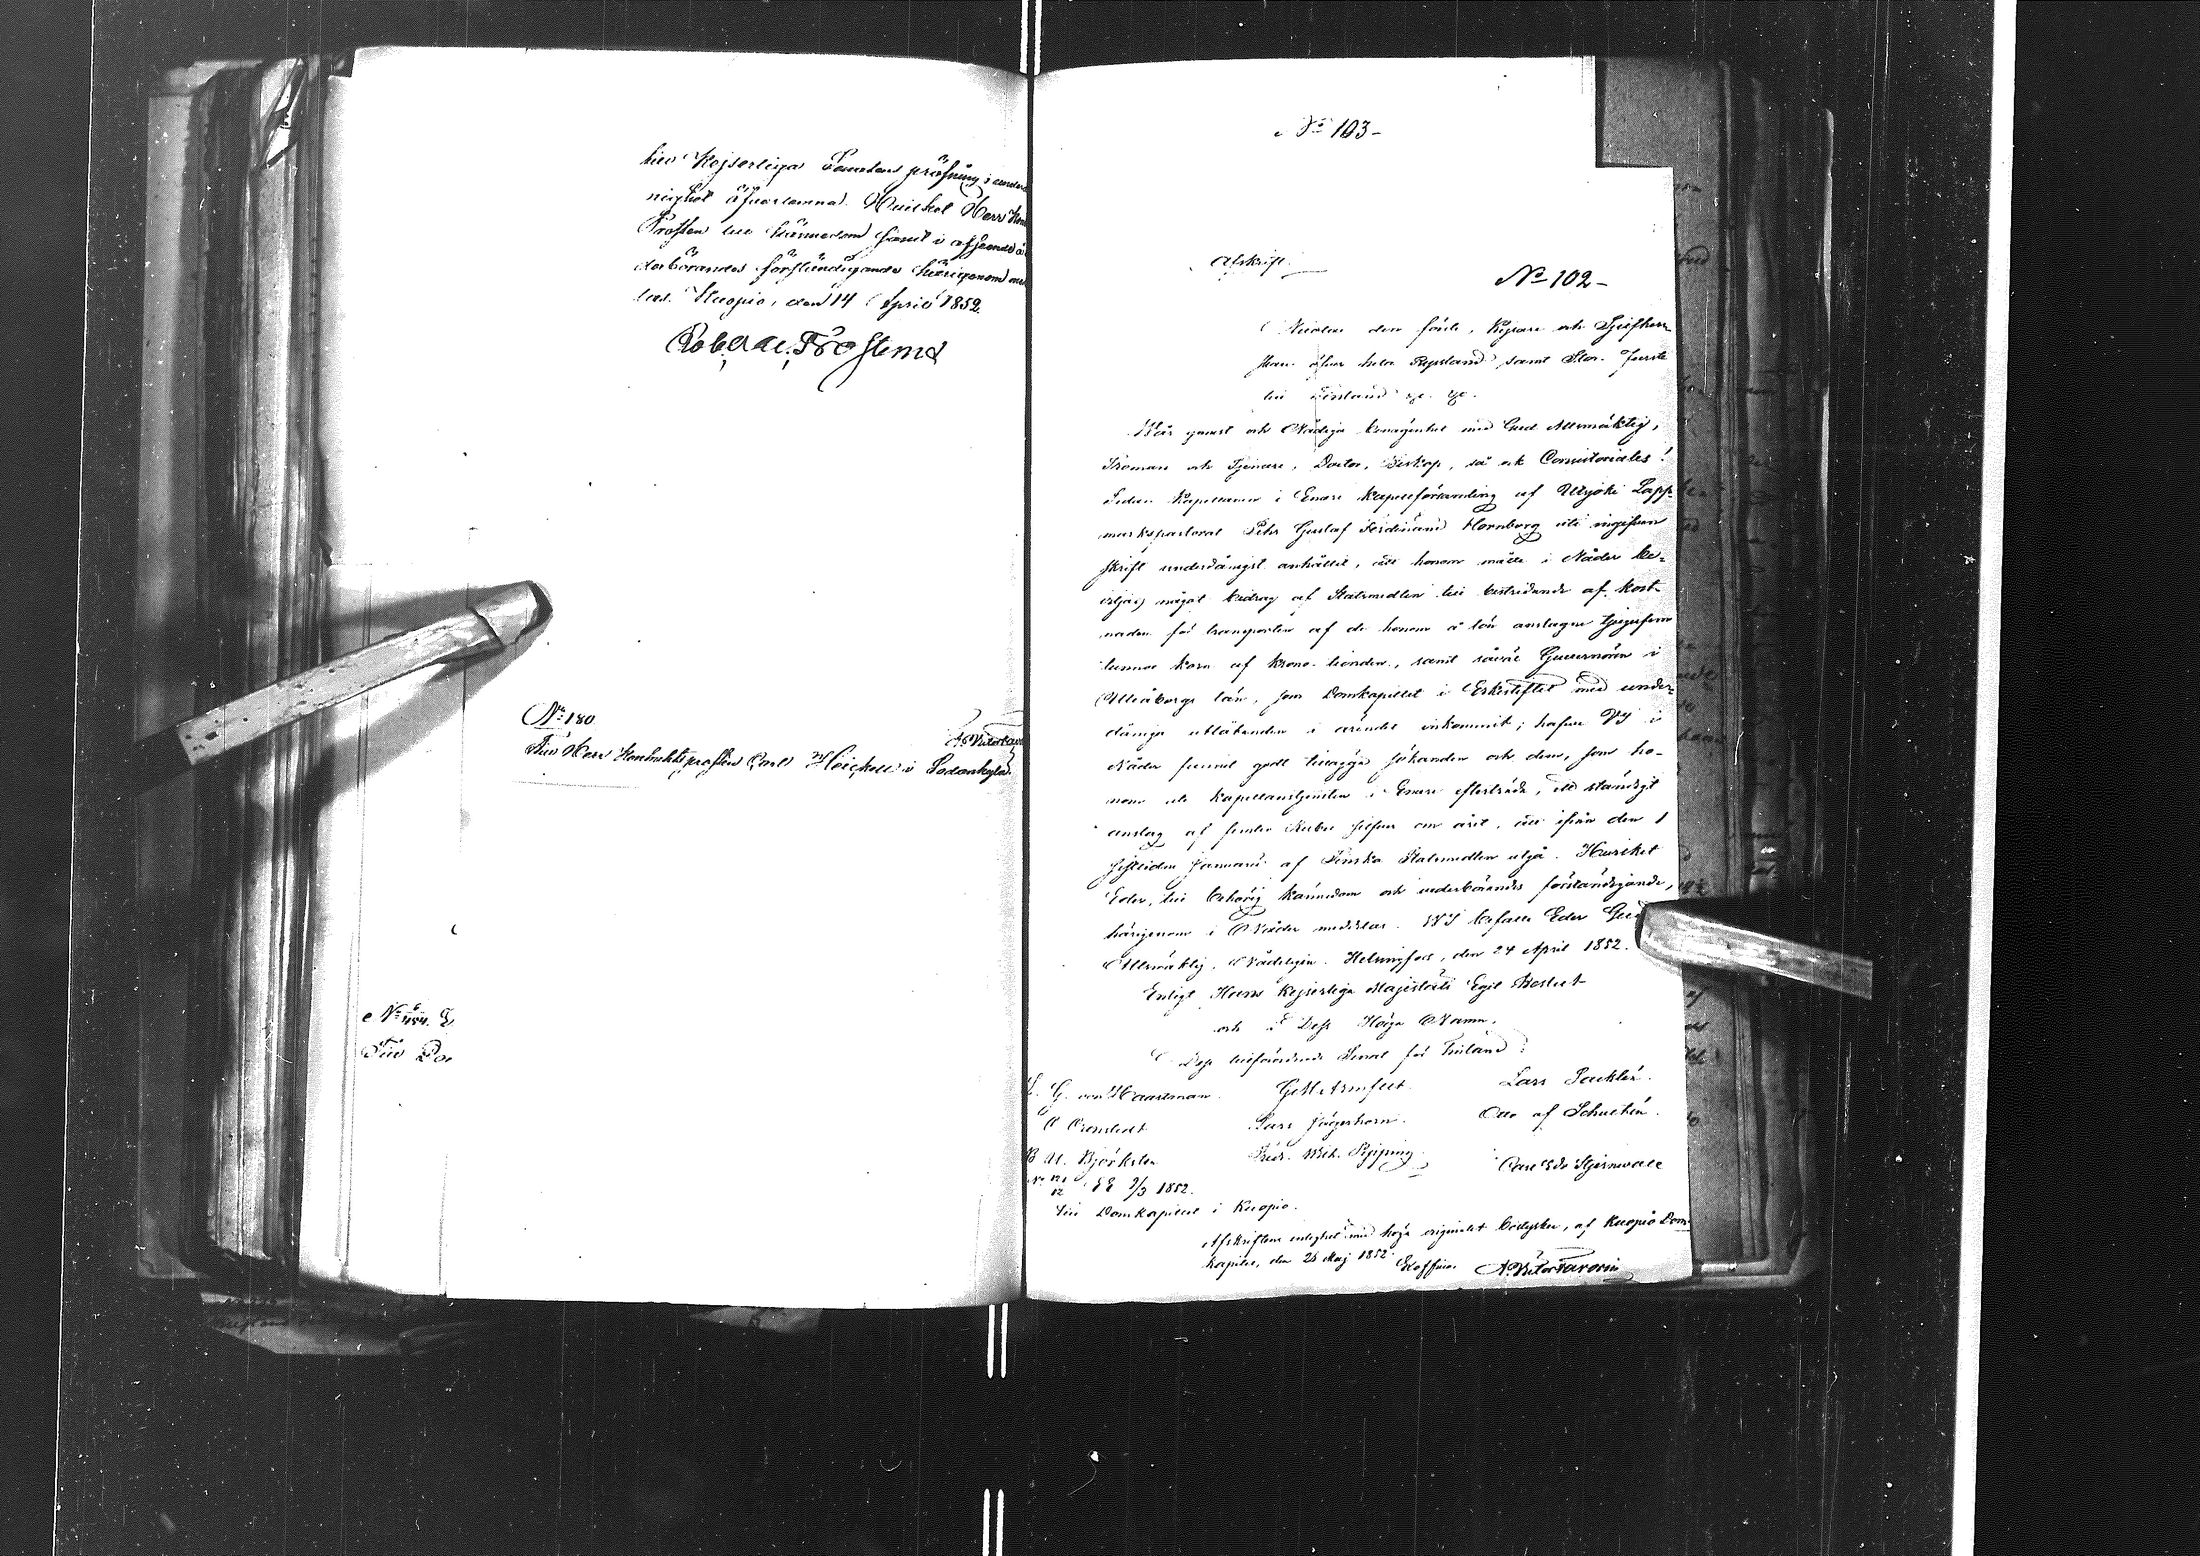 till Kejserliga Senatens pröfning i under
nighet öfverlemna. Hvilket Herr Kon
Prosten till kännedom samt i afseende å
derbörandes förständigande härigenom med
las. Kuopio, den 14 April 1852.
Robert V. Frosterus
A. Victor
No 180
Till Herr Kontraktsprosten Carl Heickell i Sodankylä.
No 454.
Till Do
No 103-
Afskrift.
No 102-
Nicolai den förste, Kejsare och Sjelfherr-
skare öfver hela Ryssland samt Stor-Furste
till Finland &c. &c.
Vår ynnest och Nådiga benägenhet med Gud Allsmäktig,
Troman och Tjenare, Doctor, Biskop, så ock Consistoriales!
Sedan Kapellanen i Enare kapellförsamling af Utsjoki Lapp-
markspastorat Petr Gustaf Ferdinand Hornborg uti ingifven
skrift underdånigst anhållit, att honom måtte i Nåder be-
viljas något bidrag af Statsmedlen till bestridande af kost-
naden för transporten af de honom å lön anslagne tjugufem
tunnor korn af krono-tionden, samt såväl Guvernören i
Uleåborgs län, som Domkapitlet i Erkestiftet med under-
dåniga utlåtanden i ärendet inkommit; hafve VI i
Nåder funnit godt tillägga sökanden och dem, som ho-
nom uti Kapellanstjensten i Enare efterträda, ett ständigt
anslag af femtio Rubel silfver om året, att ifrån den 1
sistliden Januarii af Finska Statsmedlen utgå. Hvilket
Eder, till behörig kännedom och vederbörandes förständigande,
härigenom i Nåder meddelas. VI befalle Eder Gud
Allsmäktig, Nådeligen. Helsingfors, den 24 April 1852.
Enligt Hans Kejserliga Majestäts Eget Beslut
och i Dess Höga Namn,
Dess tillförordnade Senat för Finland:
L. G. von Haartman. G. M. Armfelt. Lars Sacklén.
A Cronstedt Lars Jägerhorn. Otto af Schultén.
B. U. Björkstén Fredr. Wilh. Pipping. Carl Edv Stjernvall
No 121/12 EE 9/3 1852.
Till Domkapitlet i Kuopio.
Afskriftens enlighet med höga originalet betyder, af Kuopio Dom-
kapitel, den 26 Maj 1852. Ex officio A. Victor Favorin